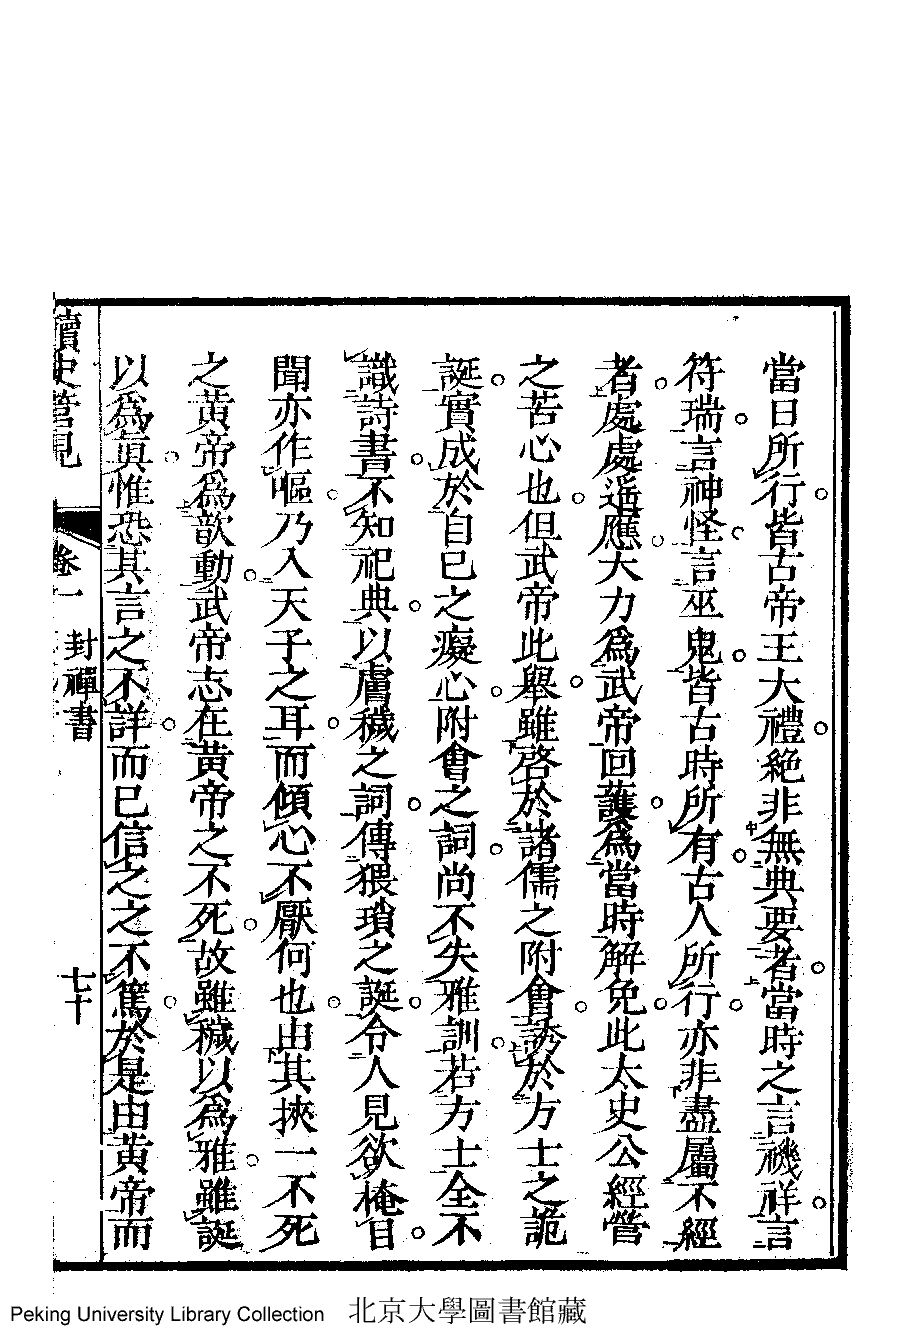 當日所行皆古帝王大禮絶非無典要者當時之言禨祥言
符瑞言神怪言巫鬼皆古時所有古人所行亦非盡屬不經
者處處遥應大力爲武帝回護爲當時解免此太史公經營
之苦心也但武帝此舉雖啓於諸儒之附會誘於方士之詭
誕實成於自已之癡心附會之詞尚不失雅訓若方士全不
識詩書不知祀典以膚穢之詞傳猥瑣之誕令人見欲掩目
聞亦作嘔乃入天子之耳而傾心不厭何也由其挾一不死
之黄帝爲歆動武帝志在黄帝之不死故雖穢以爲雅雖誕
以爲眞惟恐其言之不詳而已信之之不篤於是由黄帝而
讀史管見
卷一
封禪書
七十
Peking University Library Collection 北京大學圖書館藏